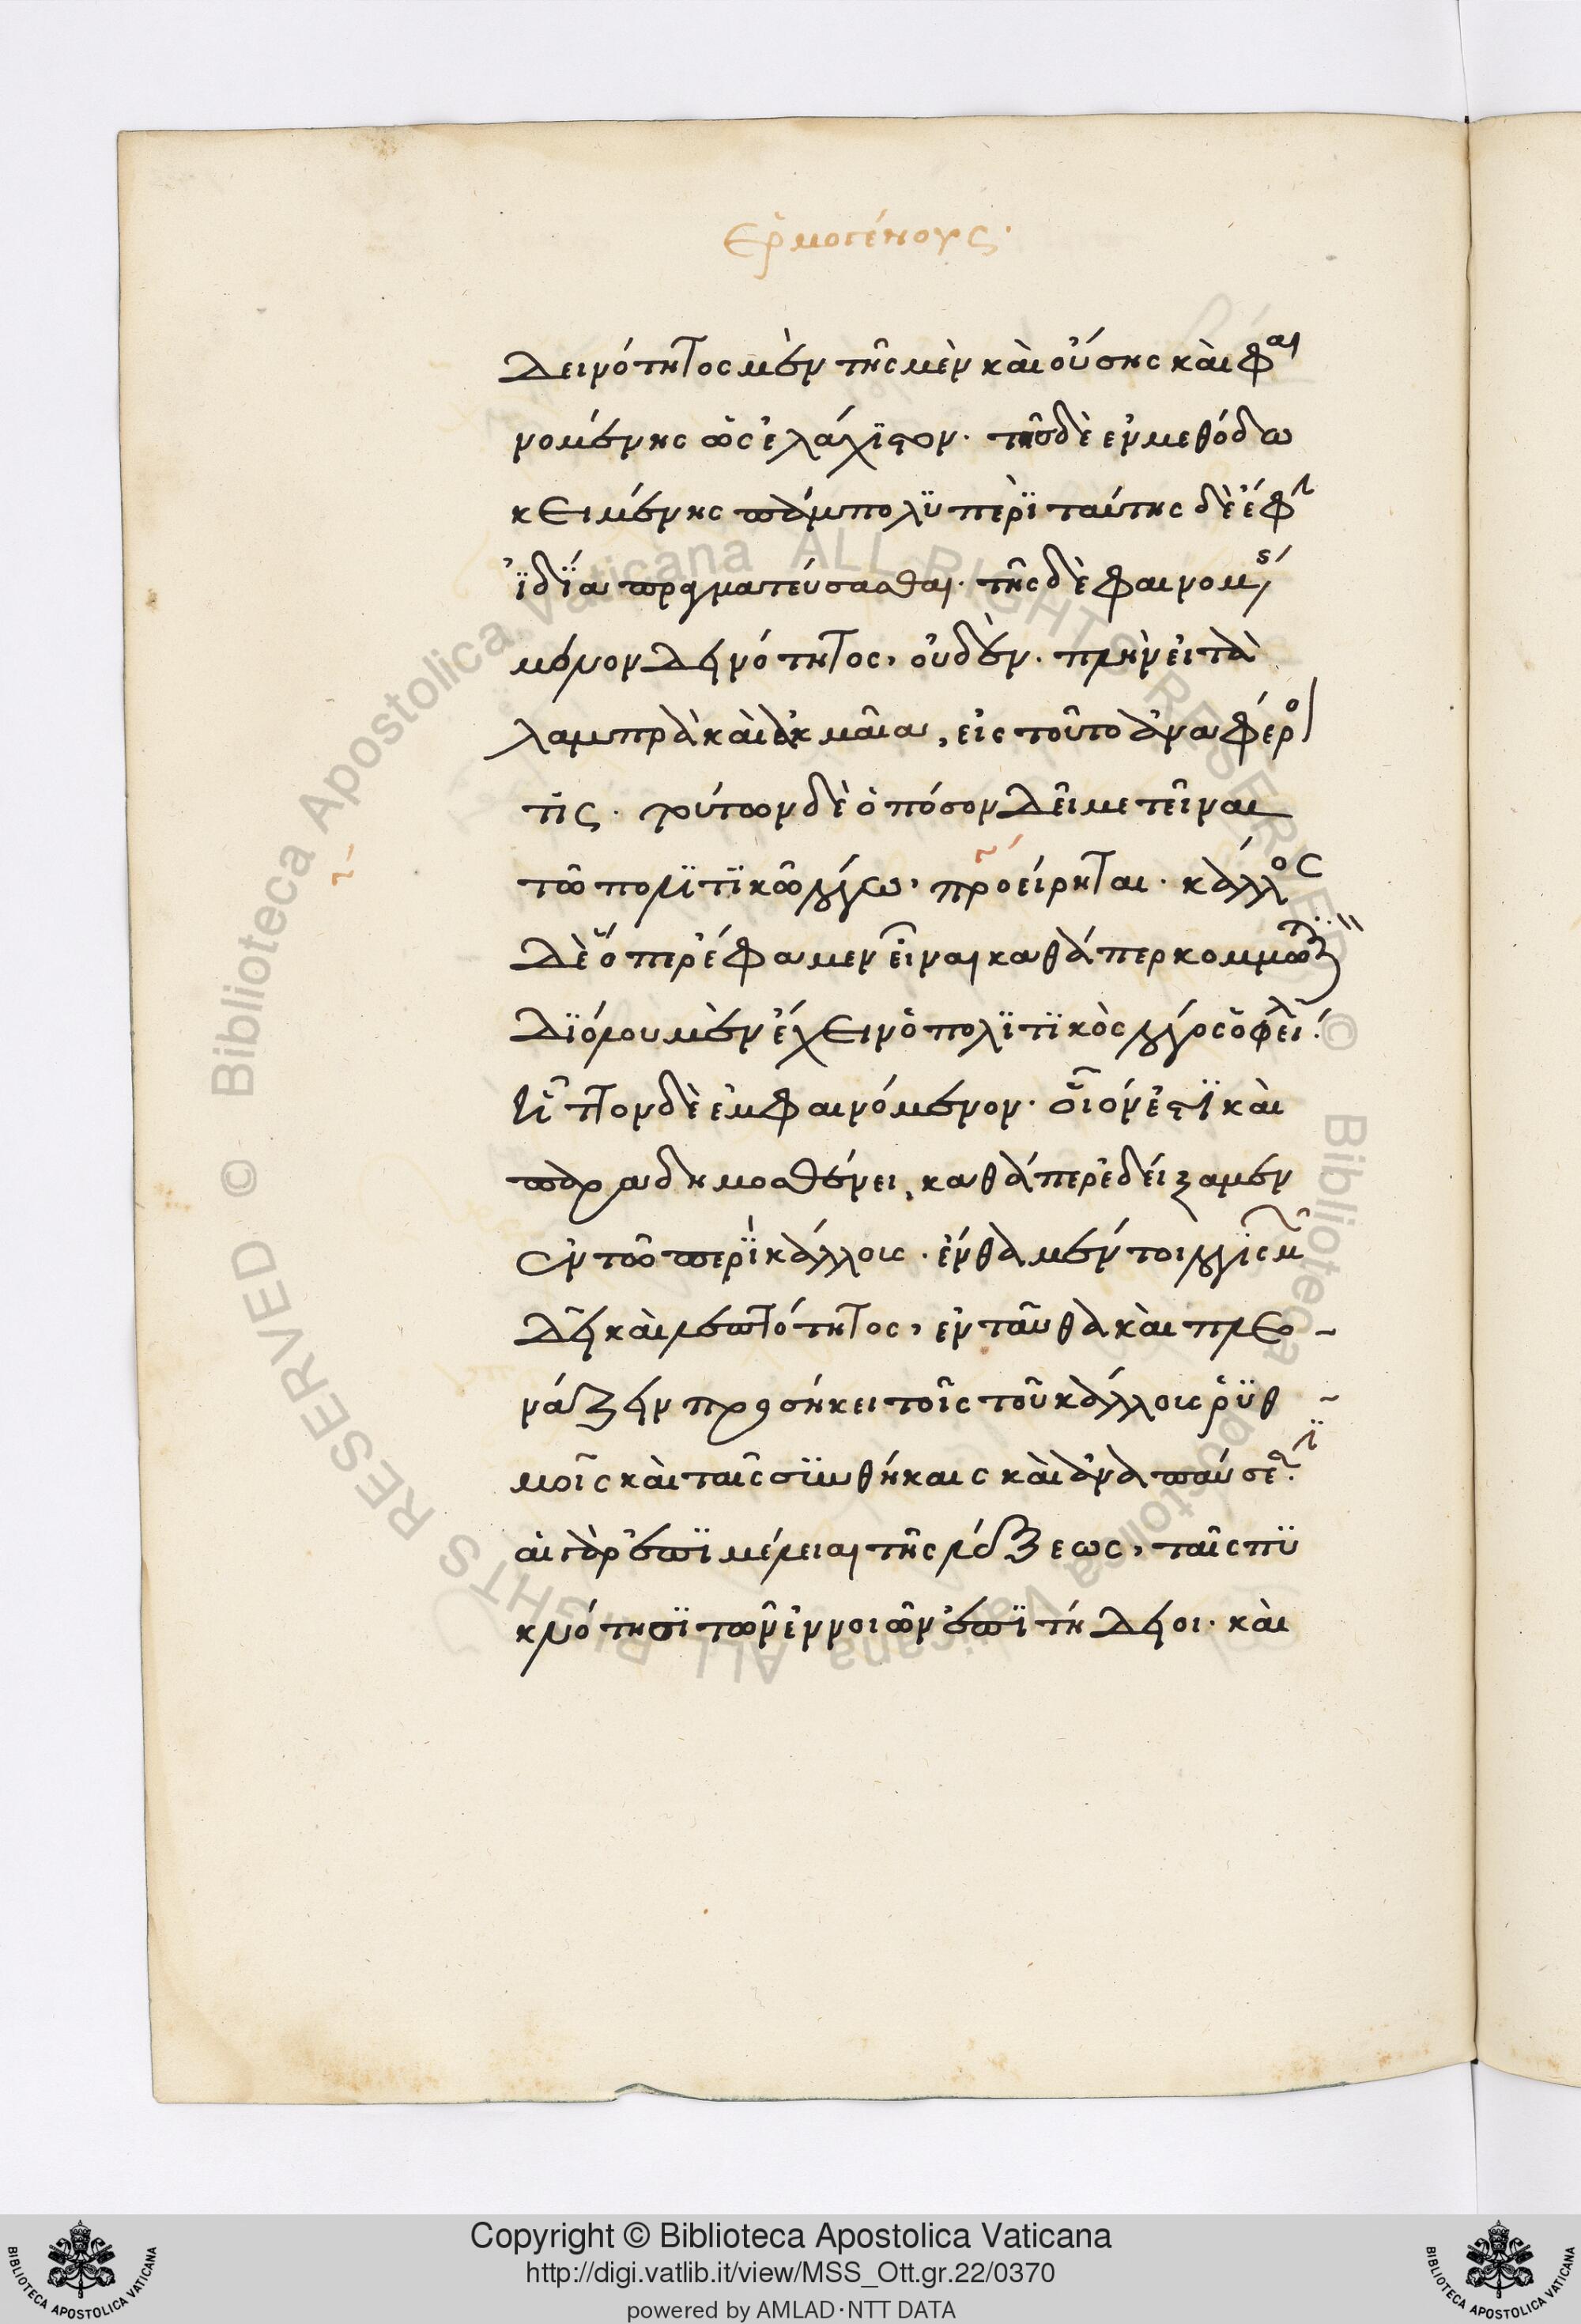 Ἑρμογένους.
δεινότητος μὲν τῆς μὲν καὶ οὔσης καὶ φαι
νομένης ὡς ἐλάχϊστον. τῆς δὲ ἐν μεθόδω
κειμένης πάμπολϋ περὶ ταύτης δὲ ἔφ
ἰδΐα πραγματεύσασθαι. τῆς δὲ φαινομ
μόνον δεινότητος, οὐδέν. πλὴν εἰ τὰ
λαμπρὰ καὶ ἀκμαῖα, εἰς τοῦτο ἀναφέρ
τὶς. τούτων δὲ ὁπόσον δεῖ μετεῖναι
τῶ πολϊτϊκῶ λόγω, προείρηται. κάλλος
δὲ ὅπερ ἔφαμεν εἶναι καθάπερ κομμωτ
δϊόλου μὲν ἔχειν ὁ πολϊτϊκὸς λόγος ὀφεί
ἧττον δὲ ἐμφαινόμενον. οἷόν ἐστϊ καὶ
παρα δημοσθένει, καθάπερ ἐδείξαμεν
ἐν τῶ περὶ κάλλους. ἔνθα μέν τοι λόγος
δεῖ καὶ λεπτότητος, ἐνταῦθα καὶ πλεο
νάζειν προσήκει τοῖς τοῦ κάλλους ῥϋθ
μοῖς καὶ ταῖς σϋνθήκαις καὶ ἀναπαύσε
αἱ γὰρ ἐπϊμέλειαι τῆς λέξεως, ταῖς πϋ
κνότησϊ τῶν ἐννοιῶν ἐπϊτήδειοι. καὶ
Copyright © Biblioteca Apostolica Vaticana
http://digi.vatlib.it/view/MSS_Ott.gr.22/0370
powered by AMLAD·NTT DATA